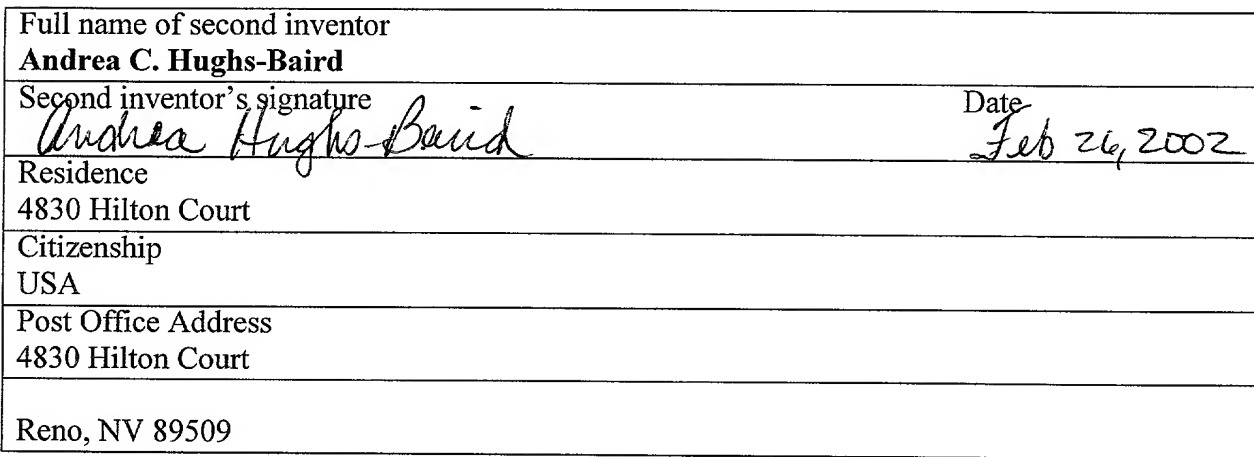 Full name of second inventor
Andrea C. Hughs-Baird
Second inventor's signature Date
Andrea Hughs-Baird Feb 26, 2002
Residence
4830 Hilton Court
Citizenship
USA
Post Office Address
4830 Hilton Court
Reno, NV 89509